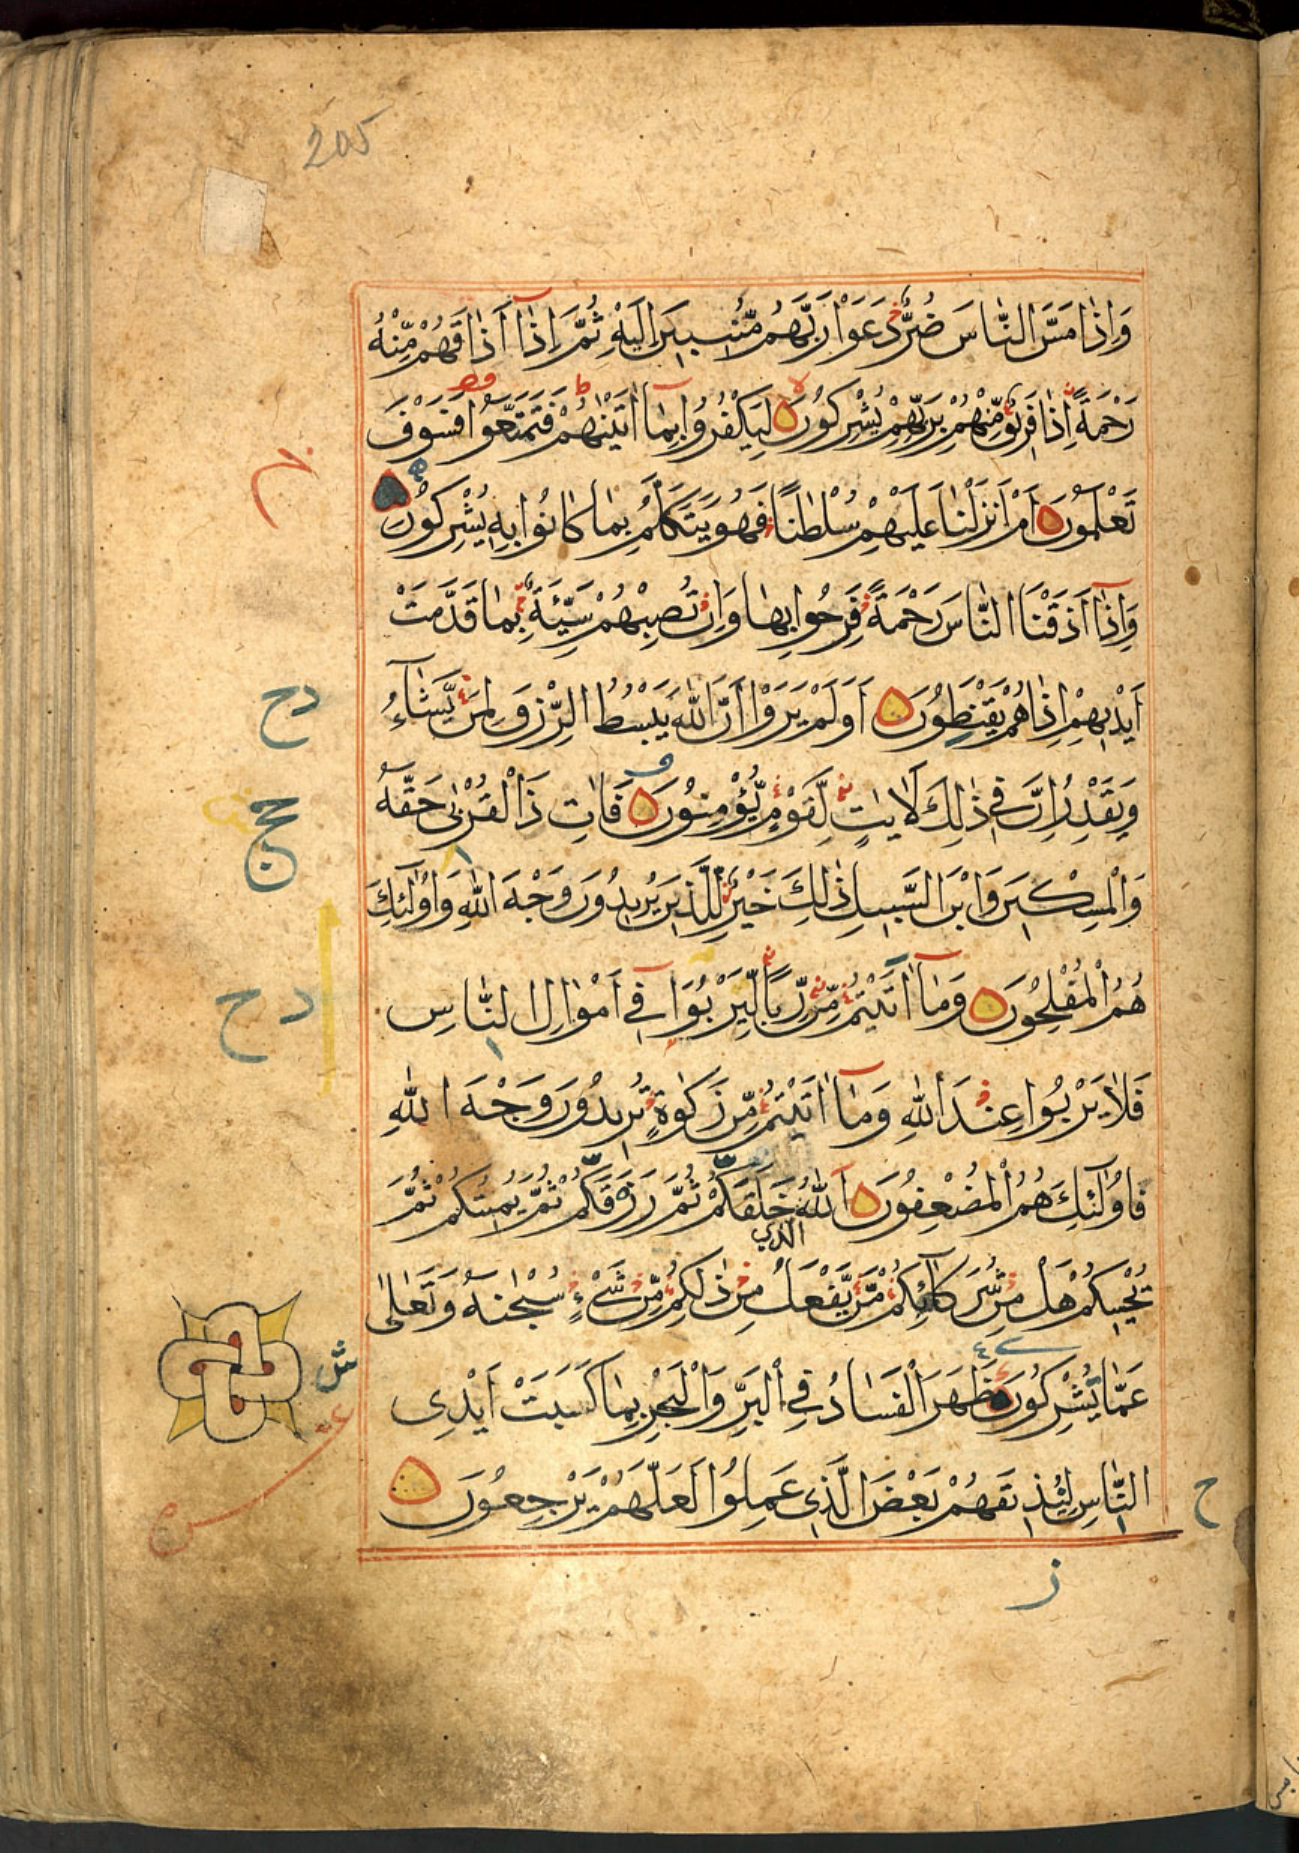 205
وَاِذَا مَسَّ النَّاسَ ضُرٌّ دَعَوْا رَبَّهُمْ مُّنِيبِينَ اِلَيْهِ ثُمَّ اِذَآ اَذَاقَهُمْ مِّنْهُ
رَحْمَةً اِذَا فَرِيْقٌ مِّنْهُمْ بِرَبِّهِمْ يُشْرِكُوْنَ لِيَكْفُرُوْا بِمَآ اٰتَيْنٰهُمْ فَتَمَتَّعُوْا فَسَوْفَ
تَعْلَمُوْنَ اَمْ اَنْزَلْنَا عَلَيْهِمْ سُلْطٰنًا فَهُوَ يَتَكَلَّمُ بِمَا كَانُوْا بِهٖ يُشْرِكُوْنَ
وَاِذَآ اَذَقْنَا النَّاسَ رَحْمَةً فَرِحُوْا بِهَا وَاِنْ تُصِبْهُمْ سَيِّئَةٌ بِمَا قَدَّمَتْ
اَيْدِيْهِمْ اِذَا هُمْ يَقْنَطُوْنَ اَوَلَمْ يَرَوْا اَنَّ اللّٰهَ يَبْسُطُ الرِّزْقَ لِمَنْ يَّشَآءُ
وَيَقْدِرُ اِنَّ فِيْ ذٰلِكَ لَاٰيٰتٍ لِّقَوْمٍ يُّؤْمِنُوْنَ فَاٰتِ ذَا الْقُرْبٰى حَقَّهٗ
وَالْمِسْكِيْنَ وَابْنَ السَّبِيْلِ ذٰلِكَ خَيْرٌ لِّلَّذِيْنَ يُرِيْدُوْنَ وَجْهَ اللّٰهِ وَاُولٰٓئِكَ
هُمُ الْمُفْلِحُوْنَ وَمَآ اٰتَيْتُمْ مِّنْ رِّبًا لِّيَرْبُوَا۟ فِيْ اَمْوَالِ النَّاسِ
فَلَا يَرْبُوْا عِنْدَ اللّٰهِ وَمَآ اٰتَيْتُمْ مِّنْ زَكٰوةٍ تُرِيْدُوْنَ وَجْهَ اللّٰهِ
فَاُولٰٓئِكَ هُمُ الْمُضْعِفُوْنَ اَللّٰهُ خَلَقَكُمْ ثُمَّ رَزَقَكُمْ ثُمَّ يُمِيْتُكُمْ ثُمَّ
الذي
يُحْيِيْكُمْ هَلْ مِنْ شُرَكَآئِكُمْ مَّنْ يَّفْعَلُ مِنْ ذٰلِكُمْ مِّنْ شَيْءٍ سُبْحٰنَهٗ وَتَعٰلٰى
عَمَّا يُشْرِكُوْنَ ظَهَرَ الْفَسَادُ فِي الْبَرِّ وَالْبَحْرِ بِمَا كَسَبَتْ اَيْدِى
النَّاسِ لِيُذِيْقَهُمْ بَعْضَ الَّذِى عَمِلُوْا لَعَلَّهُمْ يَرْجِعُوْنَ